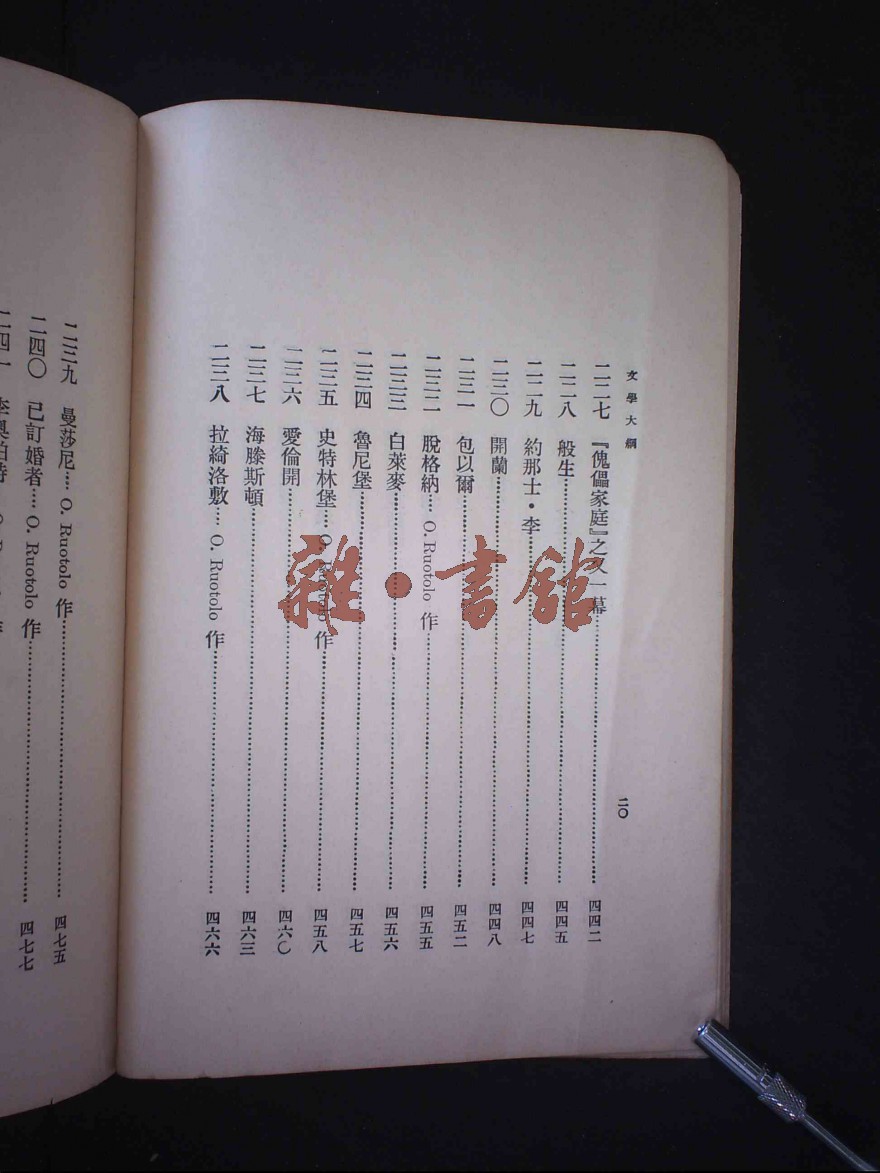 文學大綱
二〇
二二七 『傀儡家庭』之又一幕 四四二
二二八 般生 四四五
二二九 約那士・李 四四七
二三〇 開蘭 四四八
二三一 包以爾 四五二
二三二 脫格納 O. Ruotolo 作 四五五
二三三 白萊麥 四五六
二三四 魯尼堡 四五七
二三五 史特林堡 O. Ruotolo 作 四五八
二三六 愛倫開 四六〇
二三七 海滕斯頓 四六三
二三八 拉綺洛敷 O. Ruotolo 作 四六六
二三九 曼莎尼 O. Ruotolo 作 四七五
二四〇 已訂婚者 O. Ruotolo 作 四七七
二四一
雜・書館